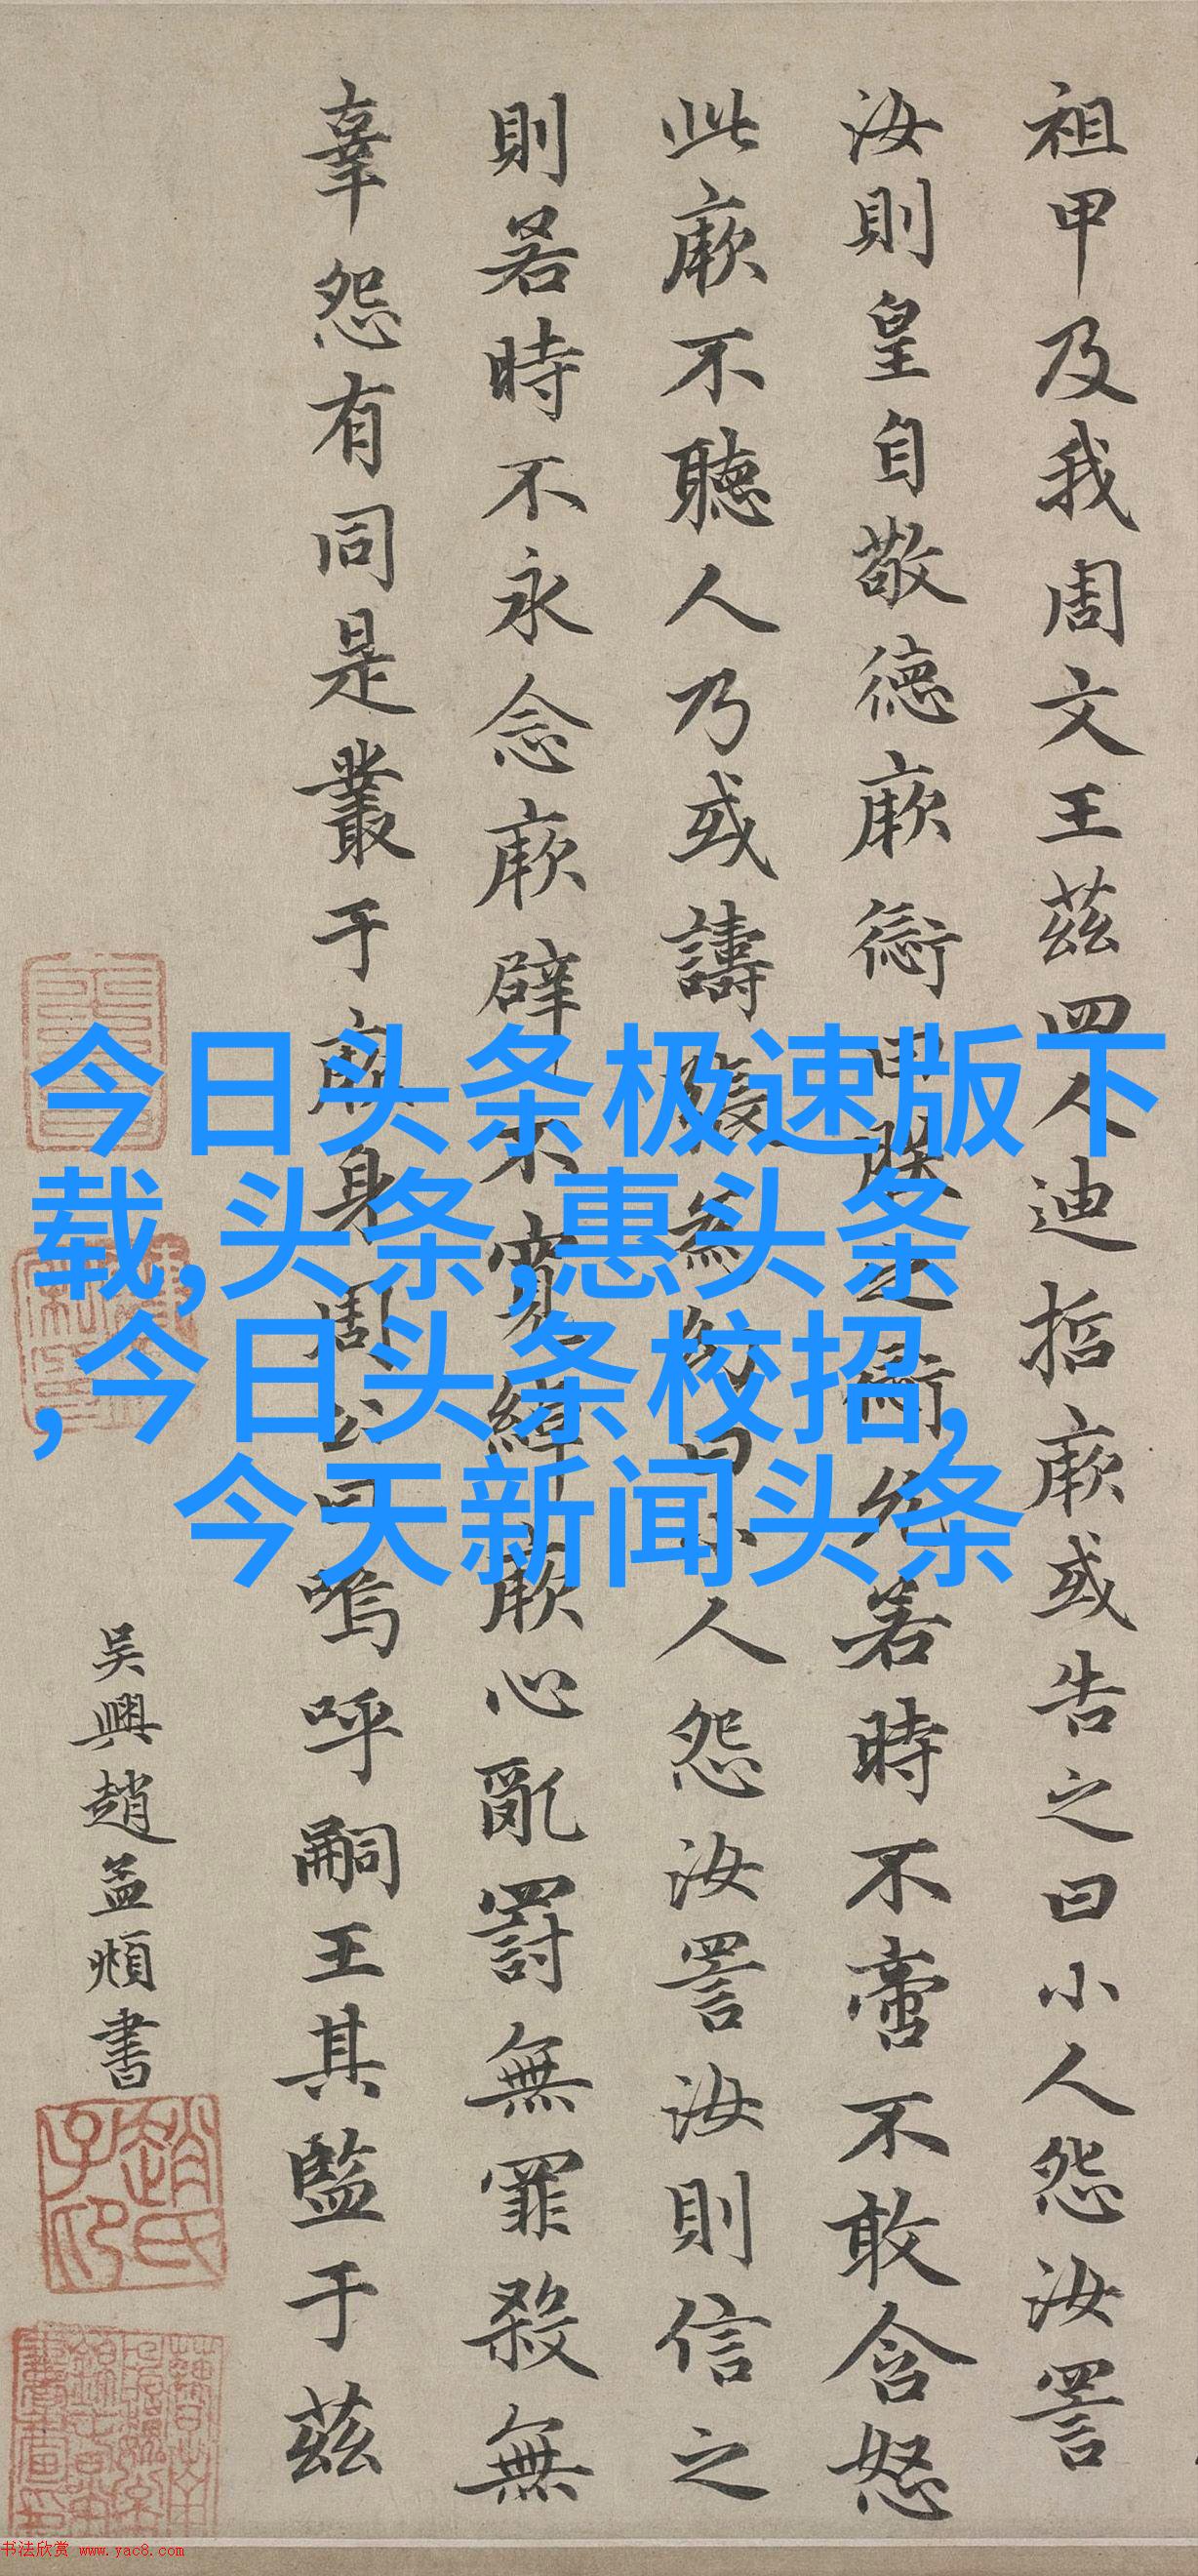 祖甲及我周文王茲四人迪哲厥或告之曰小人怨汝詈
汝則皇自敬德厥愆曰朕之愆允若時不啻不敢含怒
此厥不聽人乃或譸張為幻曰小人怨汝詈汝則信之
則若時不永念厥辟不寬綽厥心亂罰無罪殺無
辜怨有同是叢于厥身周公曰嗚呼嗣王其監于茲
吳興趙孟頫書
趙氏子昂
今日头条极速版下
载,头条,惠头条
,今日头条校招,
今天新闻头条
书法欣赏 www.yac8.com